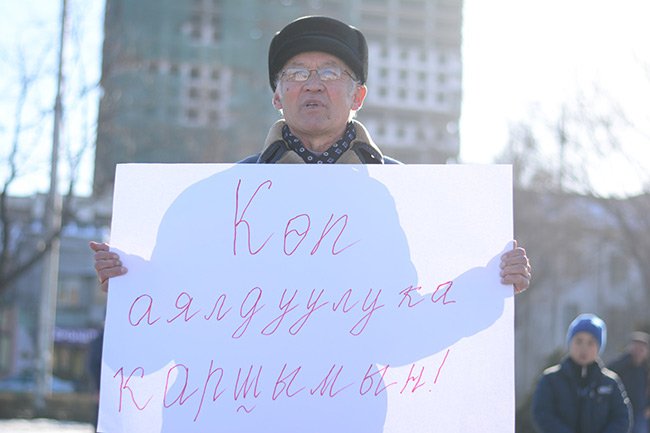 Көп
аялдуулука
каршымын!